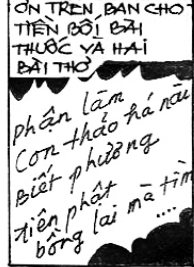 ƠN TRÊN BAN CHO
TIỀN BỐI BÀI
THUỐC VÀ HAI
BÀI THƠ
phận làm
con thảo há nài
Biết phương
tiên phật
bồng lai mà tìm
....